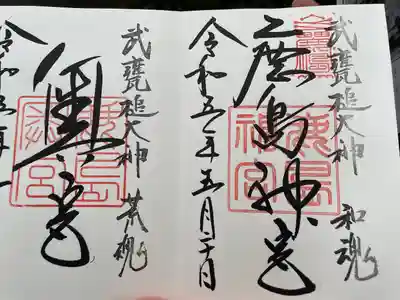 武甕槌大神 和魂
鹿島神宮
鹿島
神宮
令和五年五月二十日
武甕槌大神 荒魂
奥宮
鹿島
令和五年